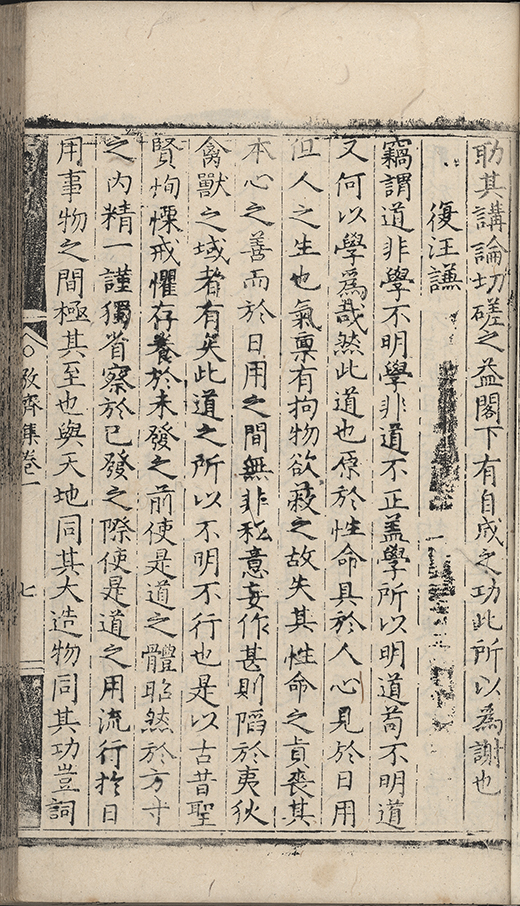 助其講論切磋之益閣下有自成之功此所以為謝也
復汪謙
竊謂道非學不明學非道不正盖學所以明道苟不明道
又何以學爲哉然此道也原於性命具於人心見於日用
但人之生也氣禀有拘物欲蔽之故失其性命之貞喪其
本心之善而於日用之間無非私意妄作甚則陷於夷狄
禽獸之域者有矣此道之所以不明不行也是以古昔聖
賢恂慄戒懼存養於未發之前使是道之體昭然於方寸
之内精一謹獨省察於已發之際使是道之用流行於日
用事物之間極其至也與天地同其大造物同其功豈詞
攷齊集卷一
七